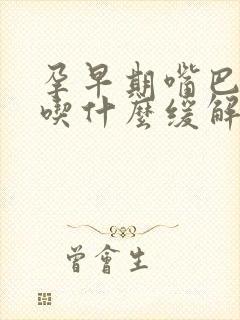 孕早期嘴巴
喫什麼緩解
曾會生